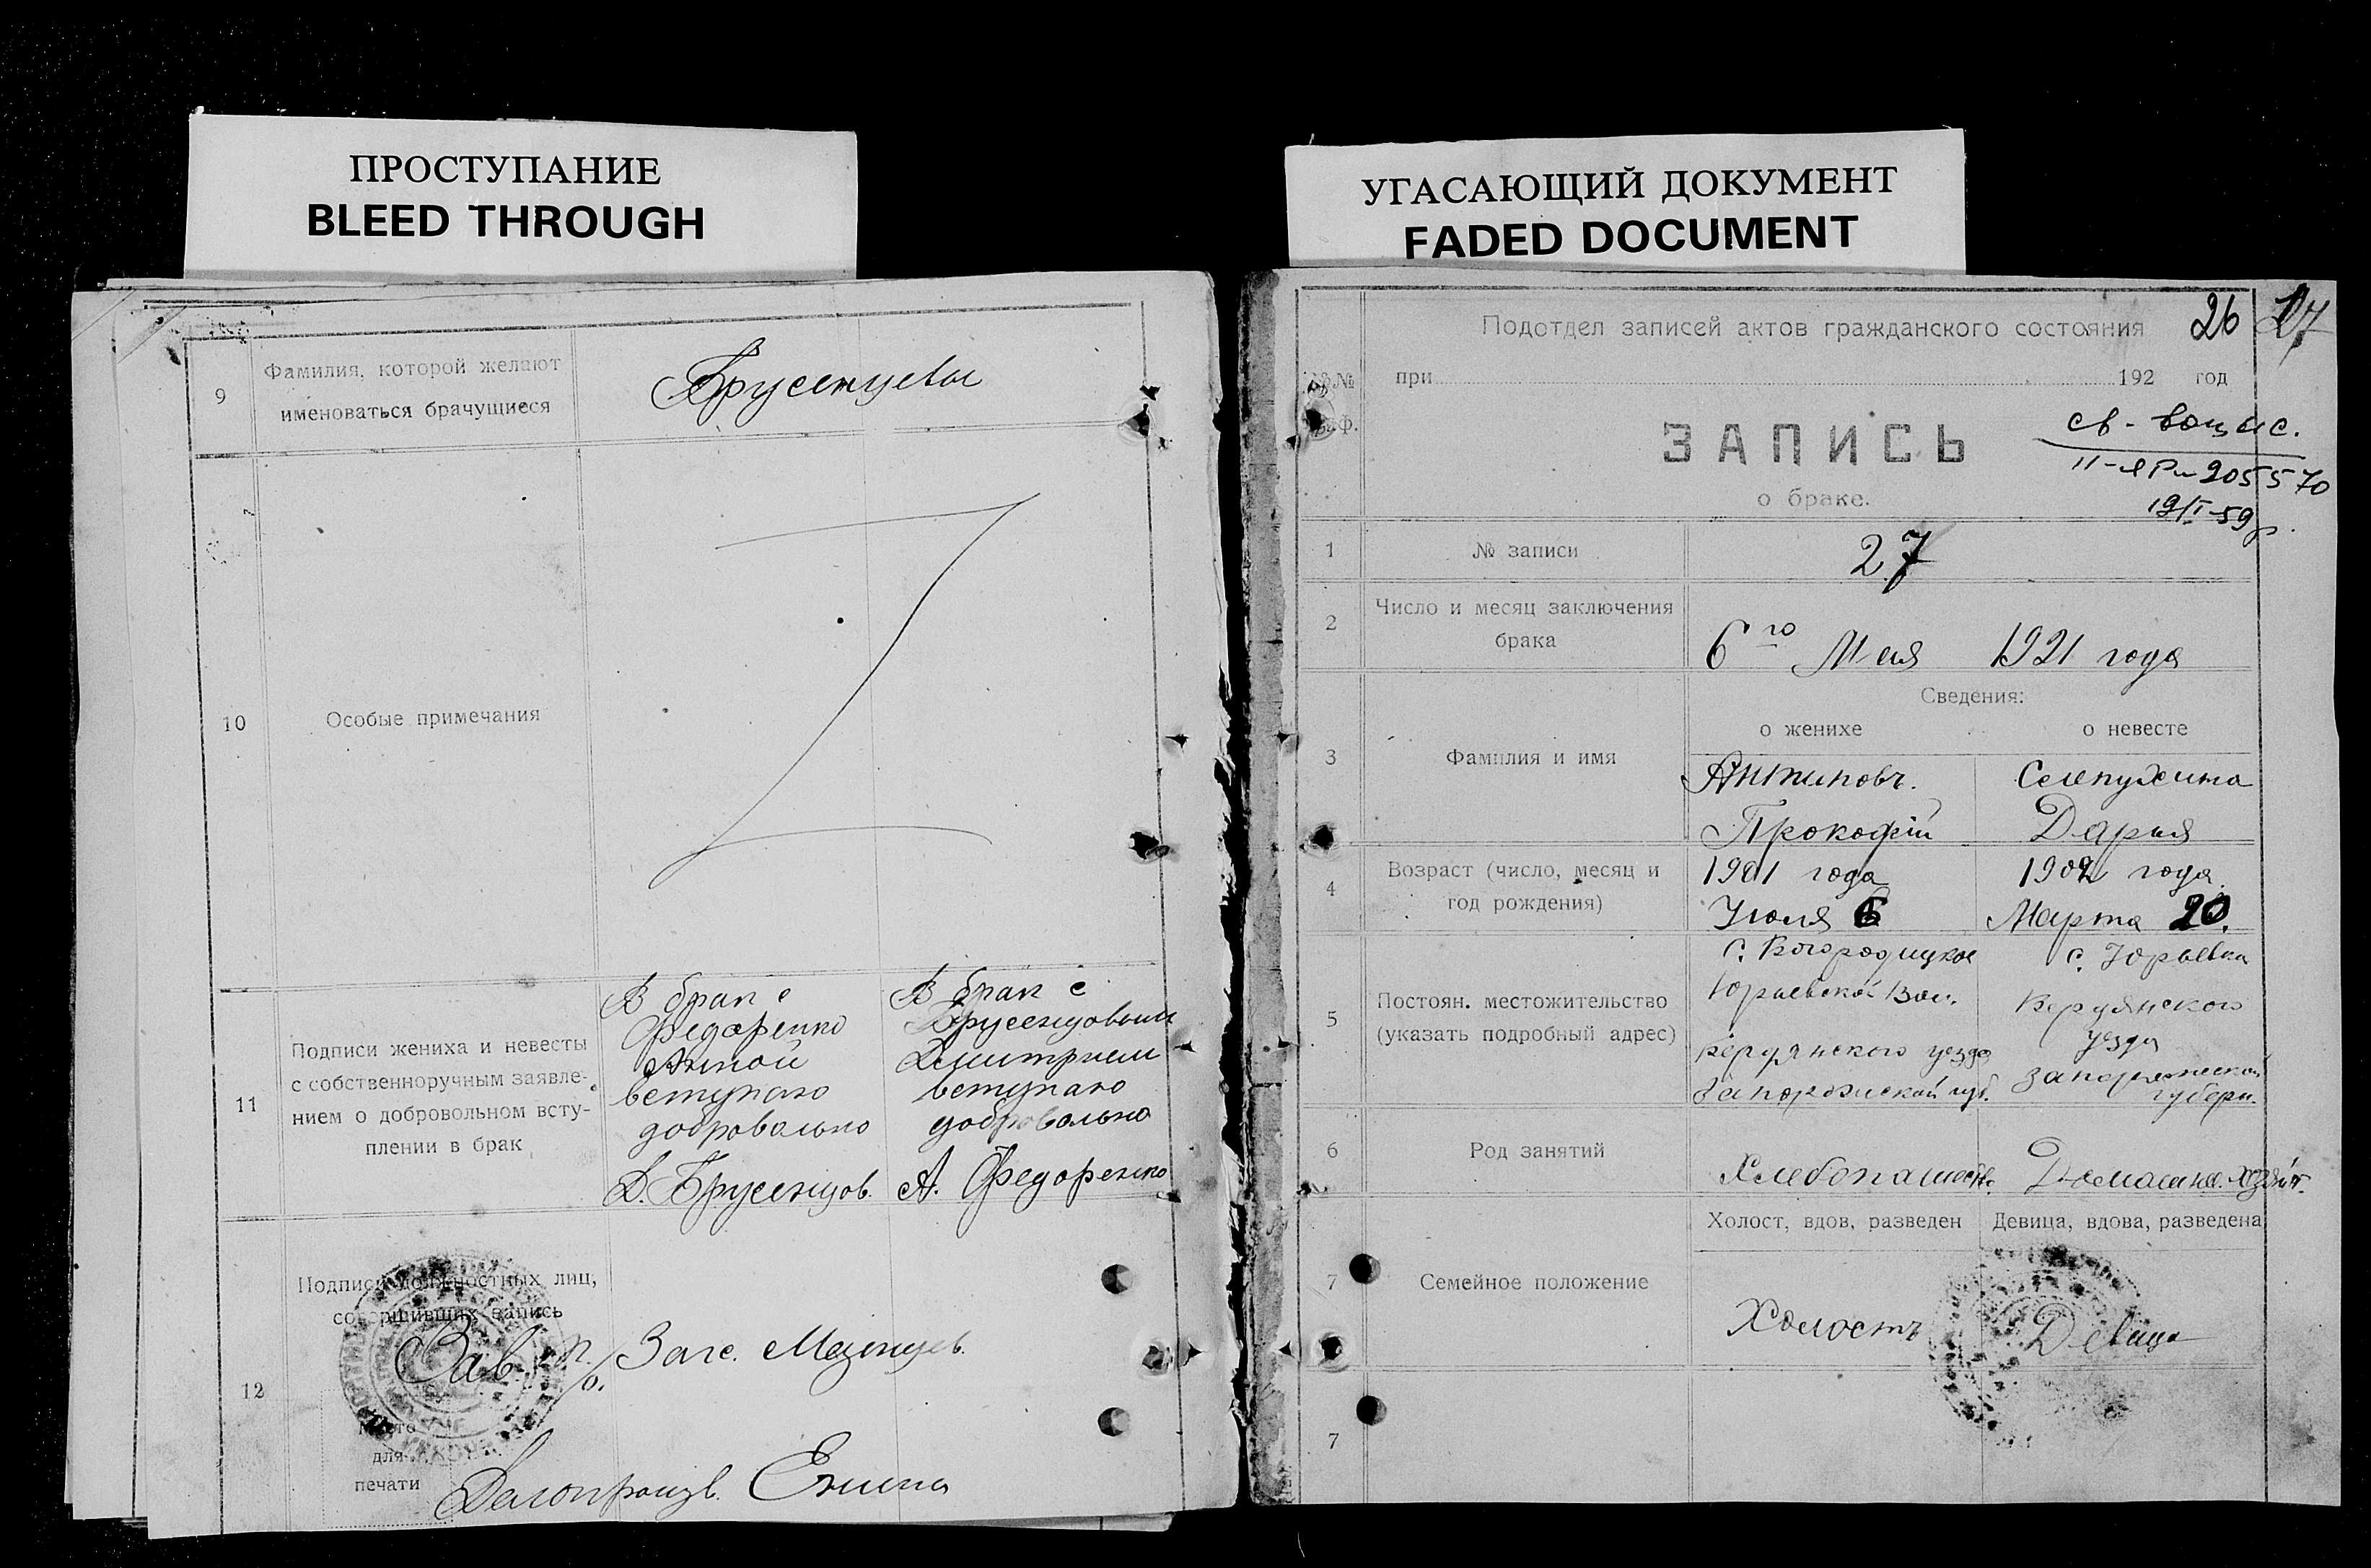 ПРОСТУПАНИЕ
BLEED THROUGH
9
Фамилия, которой желают
именоваться брачущиеся
Брусенцевы
10
Особые примечания
11
Подписи жениха и невесты
с собственноручным заявле-
нием о добровольном всту-
плении в брак
В брак с
Федоренко
Анной
вступаю
добровольно
Д. Брусенцов.
В брак с
Брусенцовым
Дмитрием
вступаю
добровольно
А. Федоренко
12
Подписи должностных лиц,
совершивших запись
Зав. п/о. Загс. Мезенцев.
Место
для
печати
Делопроизв. Енина
УГАСАЮЩИЙ ДОКУМЕНТ
FADED DOCUMENT
26 27
Подотдел записей актов гражданского состояния
№№
при 192 год
ЗАПИСЬ
о браке.
св-
205570
19/I-59
1
№ записи
27
2
Число и месяц заключения
брака
6го Мая 1921 года
3
Фамилия и имя
Сведения:
о женихе
о невесте
Антиповъ.
Прокофій
Селепухина
Дарья
4
Возраст (число, месяц и
год рождения)
1901 года
Июля 6
1902 года
Марта 20.
5
Постоян. местожительство
(указать подробный адрес)
с. Богородицкое
Юрьевской Вол.
Бердянского уезда
Запорожской губ.
с. Юрьевка
Бердянского
уезда
Запорожской
губерн.
6
Род занятий
Хлебопашеств.
Домашн. хозяйт.
7
Семейное положение
Холост, вдов, разведен
Девица, вдова, разведена
Холостъ
Девица
7